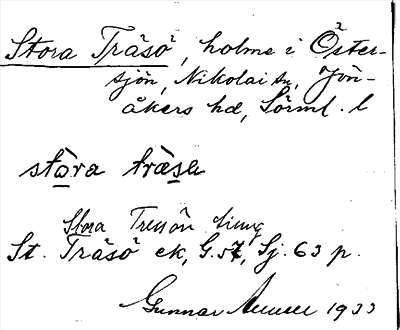 Stora Träsö, holme i Öster-
sjön, Nikolai sn, Jön-
åkers hd, Sörml. l
stòra träsⱥ
Stora Tresön
St. Träsö ek, G. 57, Sj. 63 p.
Gunnar 1933